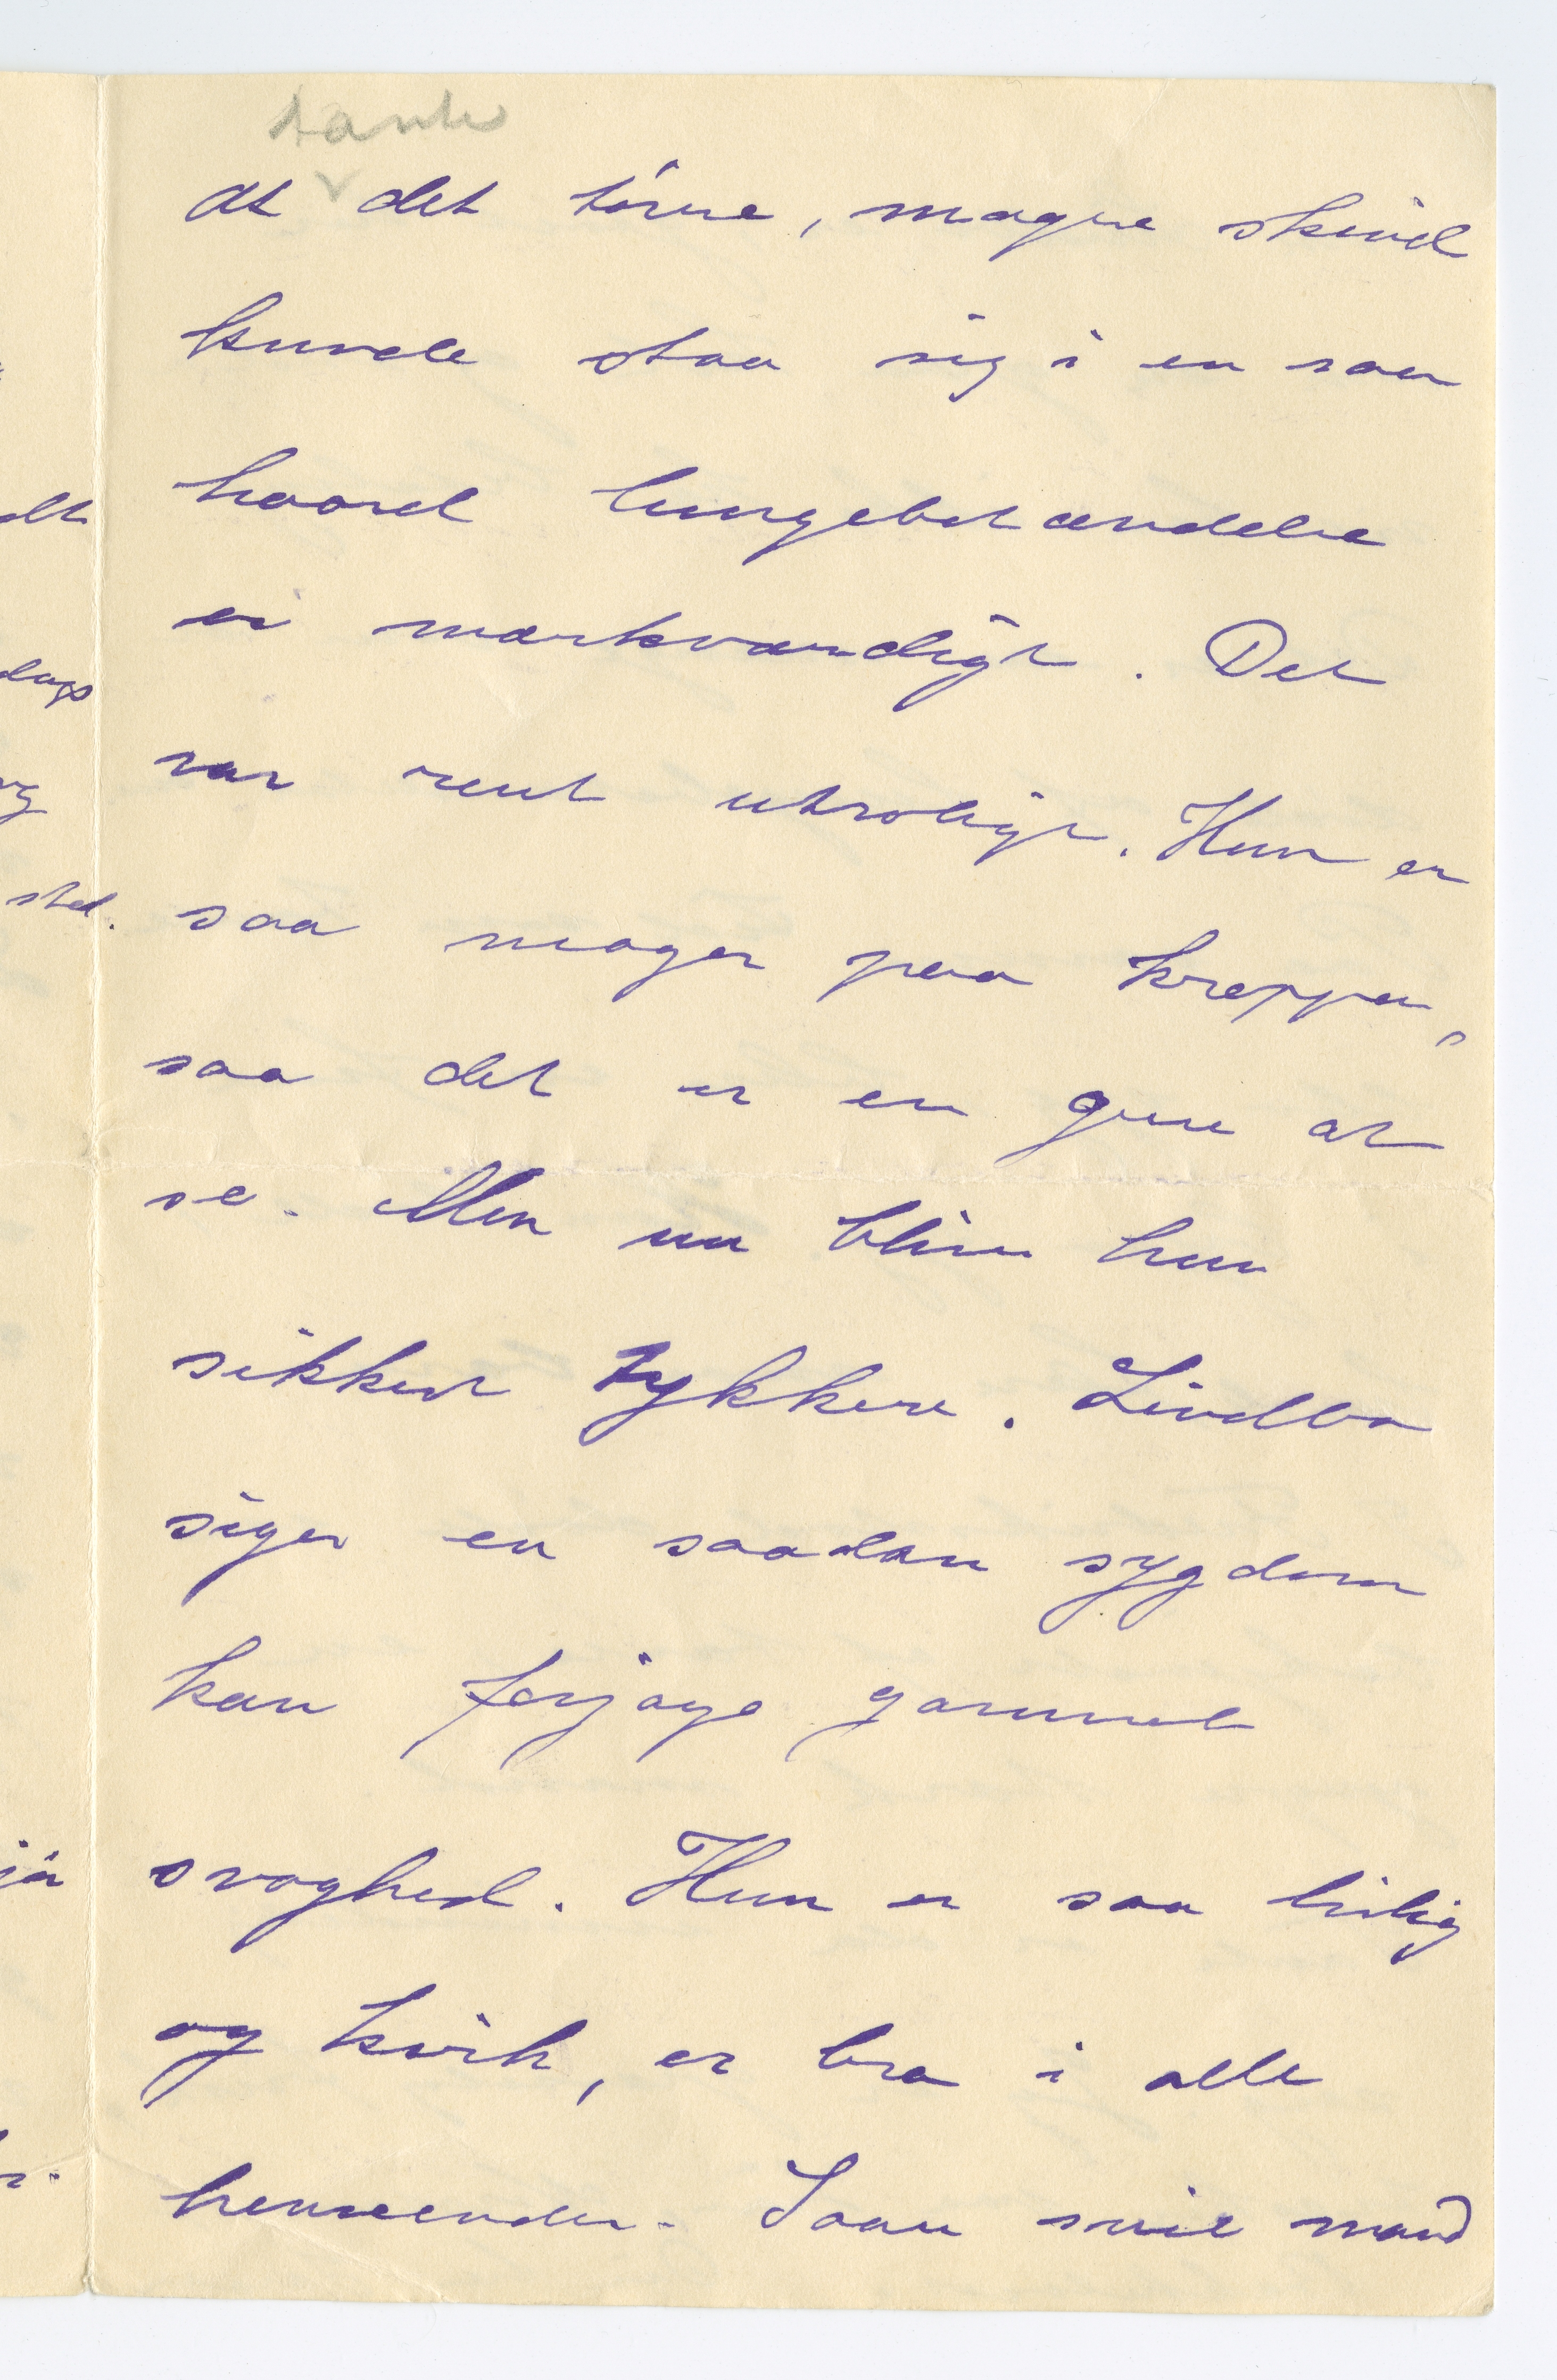 tanke
at det törre, magre skind
kunde staa sig i en saa
haard lungebetændelse
er mærkværdigt. Det
var rent utroligt. Hun er
saa mager paa kroppen,
saa det er en gru at
se. Men nu bliver hun
sikkert tykkere. Lindboe
siger en saadan sygdom
kan forjage gammel
svaghed. Hun er saa livlig
og kvik, er bra i alle
henseender. Saan snil mand
sted.